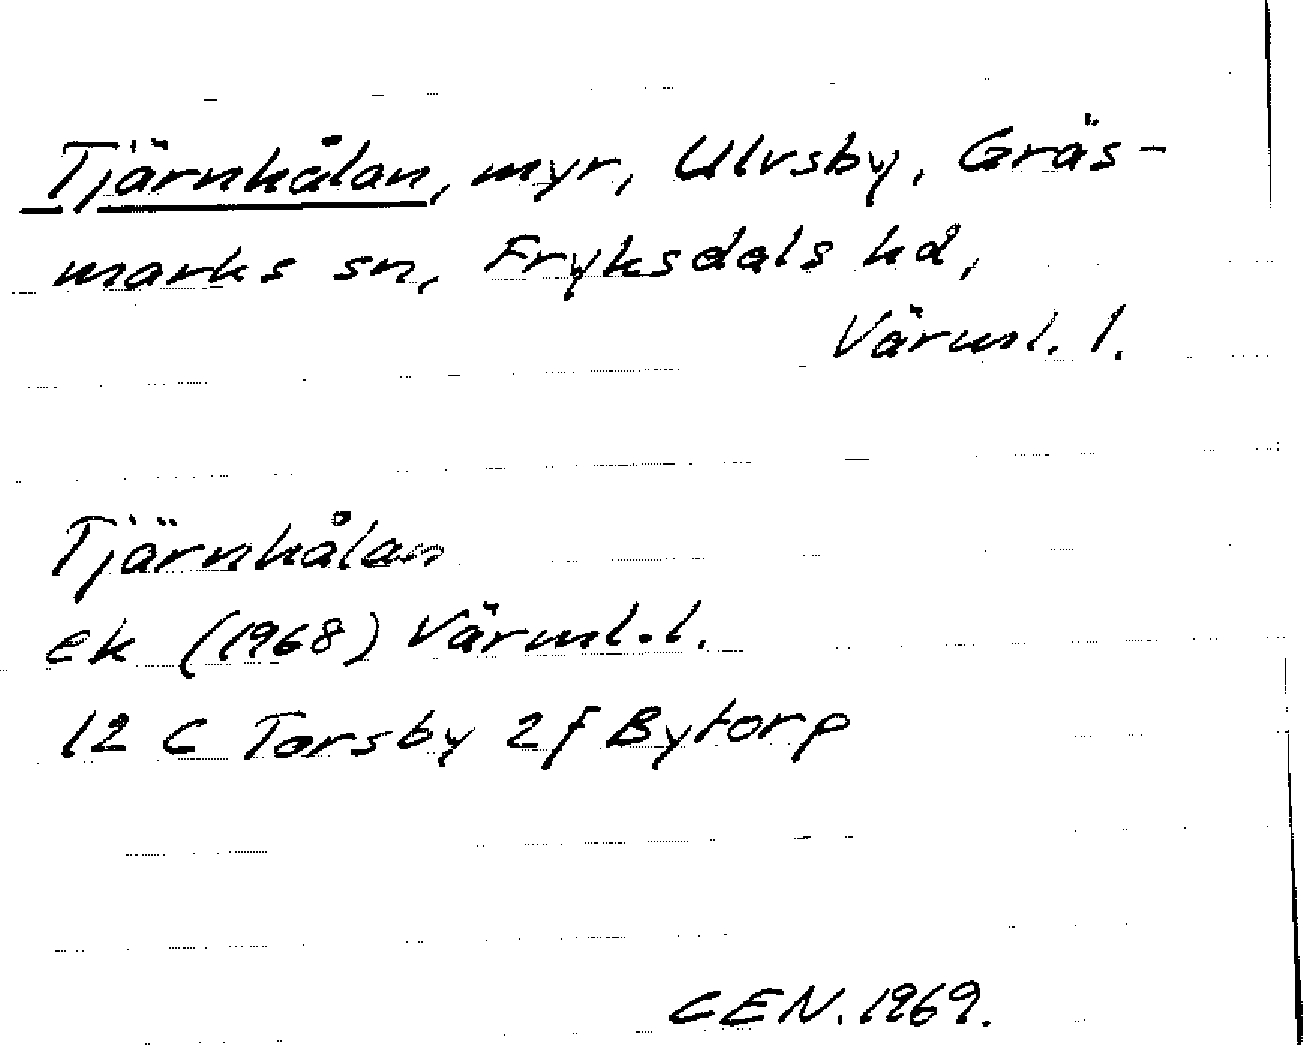 Tjärnhålan, myr, Ulvsby, Gräs-
marks sn, Fryksdals hd,
Värml. l.
Tjärnhålan
ek (1968) Värml. l.
12 C Torsby 2f Bytorp
CEN. 1969.